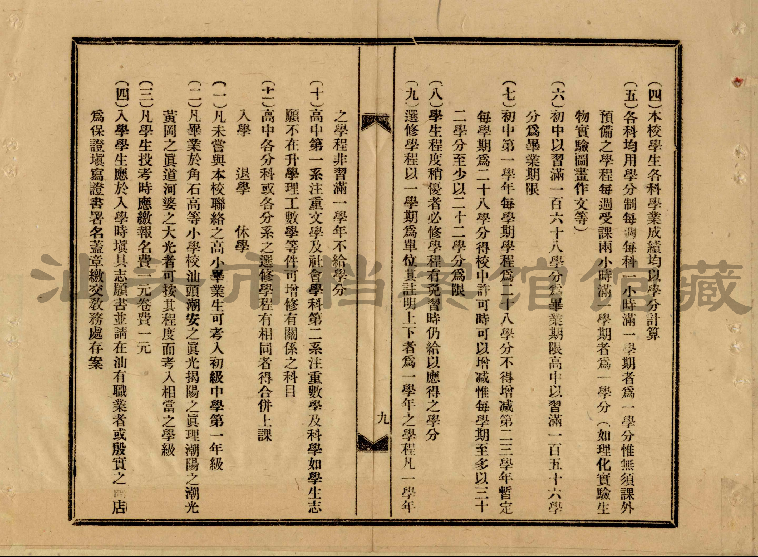 （四）本校學生各科學業成績均以學分計算
（五）各科均用學分制每週每科一小時滿一學期者爲一學分惟無須課外
預備之學程每週受課兩小時滿一學期者爲一學分（如理化實驗生
物實驗圖畫作文等）
（六）初中以習滿一百六十八學分爲畢業期限高中以習滿一百五十六學
分爲畢業期限
（七）初中第一學年每學期學程爲二十八學分不得增減第二三學年暫定
每學期爲二十八學分得校中許可時可以增減惟每學期至多以三十
二學分至少以二十二學分爲限
（八）學生程度稍優者必修學程有免習時仍給以應得之學分
（九）選修學程以一學期爲單位其註明上下者爲一學年之學程凡一學年
九
之學程非習滿一學年不給學分
（十）高中第一系注重文學及社會學科第二系注重數學及科學如學生志
願不在升學理工數學等件可增修有關係之科目
（十一）高中各分科或各分系之選修學程有相同者得合併上課
入學　退學　休學
（一）凡未嘗與本校聯絡之高小畢業生可考入初級中學第一年級
（二）凡畢業於角石高等小學校汕頭潮安之眞光揭陽之眞理潮陽之潮光
黃岡之眞道河婆之大光者可按其程度而考入相當之學級
（三）凡學生投考時應繳報名費二元卷費一元
（四）入學學生應於入學時塡具志願書並請在汕有職業者或殷實之店
爲保證塡寫證書署名蓋章繳交教務處存案
汕头市档案馆馆藏